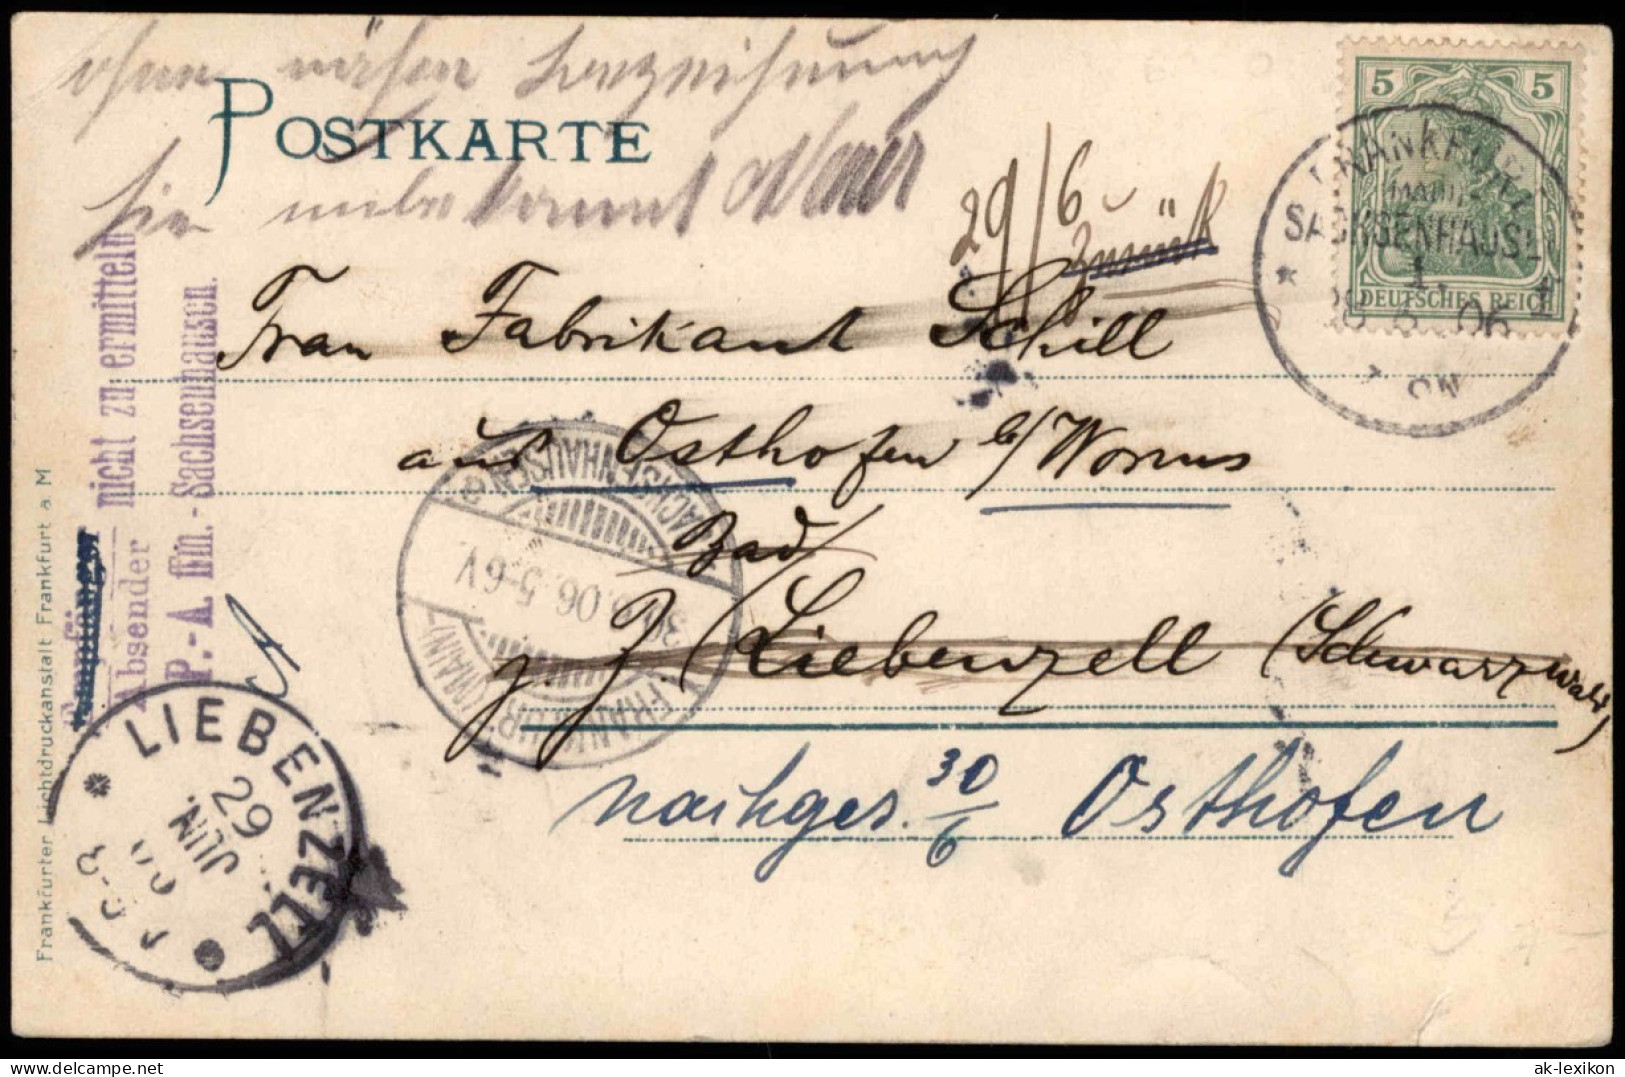 ohne nähere Bezeichnung
POSTKARTE
hier unbekannt
29/6 zurück
5 5
DEUTSCHES REICH
FRANKFURT
(MAIN)-
SACHSENHAUSEN
1.
06
Frau Fabrikant Schill
aus Osthofen b/Worms
Bad/
z. Z. Liebenzell (Schwarzwald)
nachges. 30/6 Osthofen
Empfänger
Absender nicht zu ermitteln
P.-A. Ffm.-Sachsenhausen.
FRANKFURT (MAIN)
SACHSENHAUSEN
30.6.06.5-6V
LIEBENZELL
29 JUN
06
Frankfurter Lichtdruckanstalt Frankfurt a. M
ak-lexikon